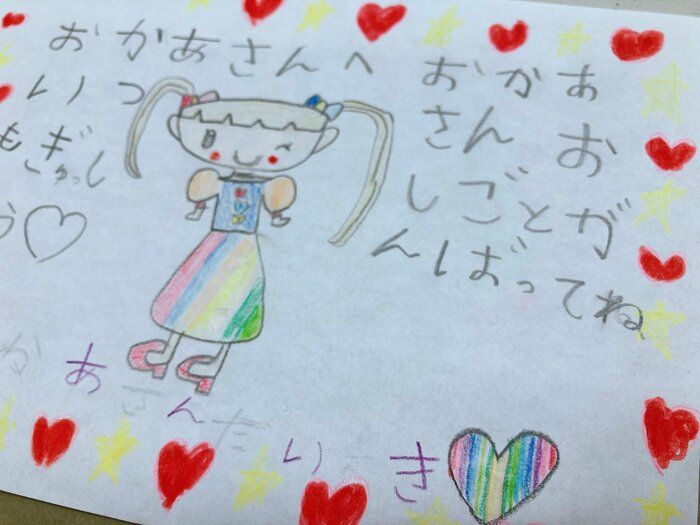 おかあさんへ
いつ
もぎゅっし
う♡
おかあ
さんお
しごとが
んばってね
かあさんだいき